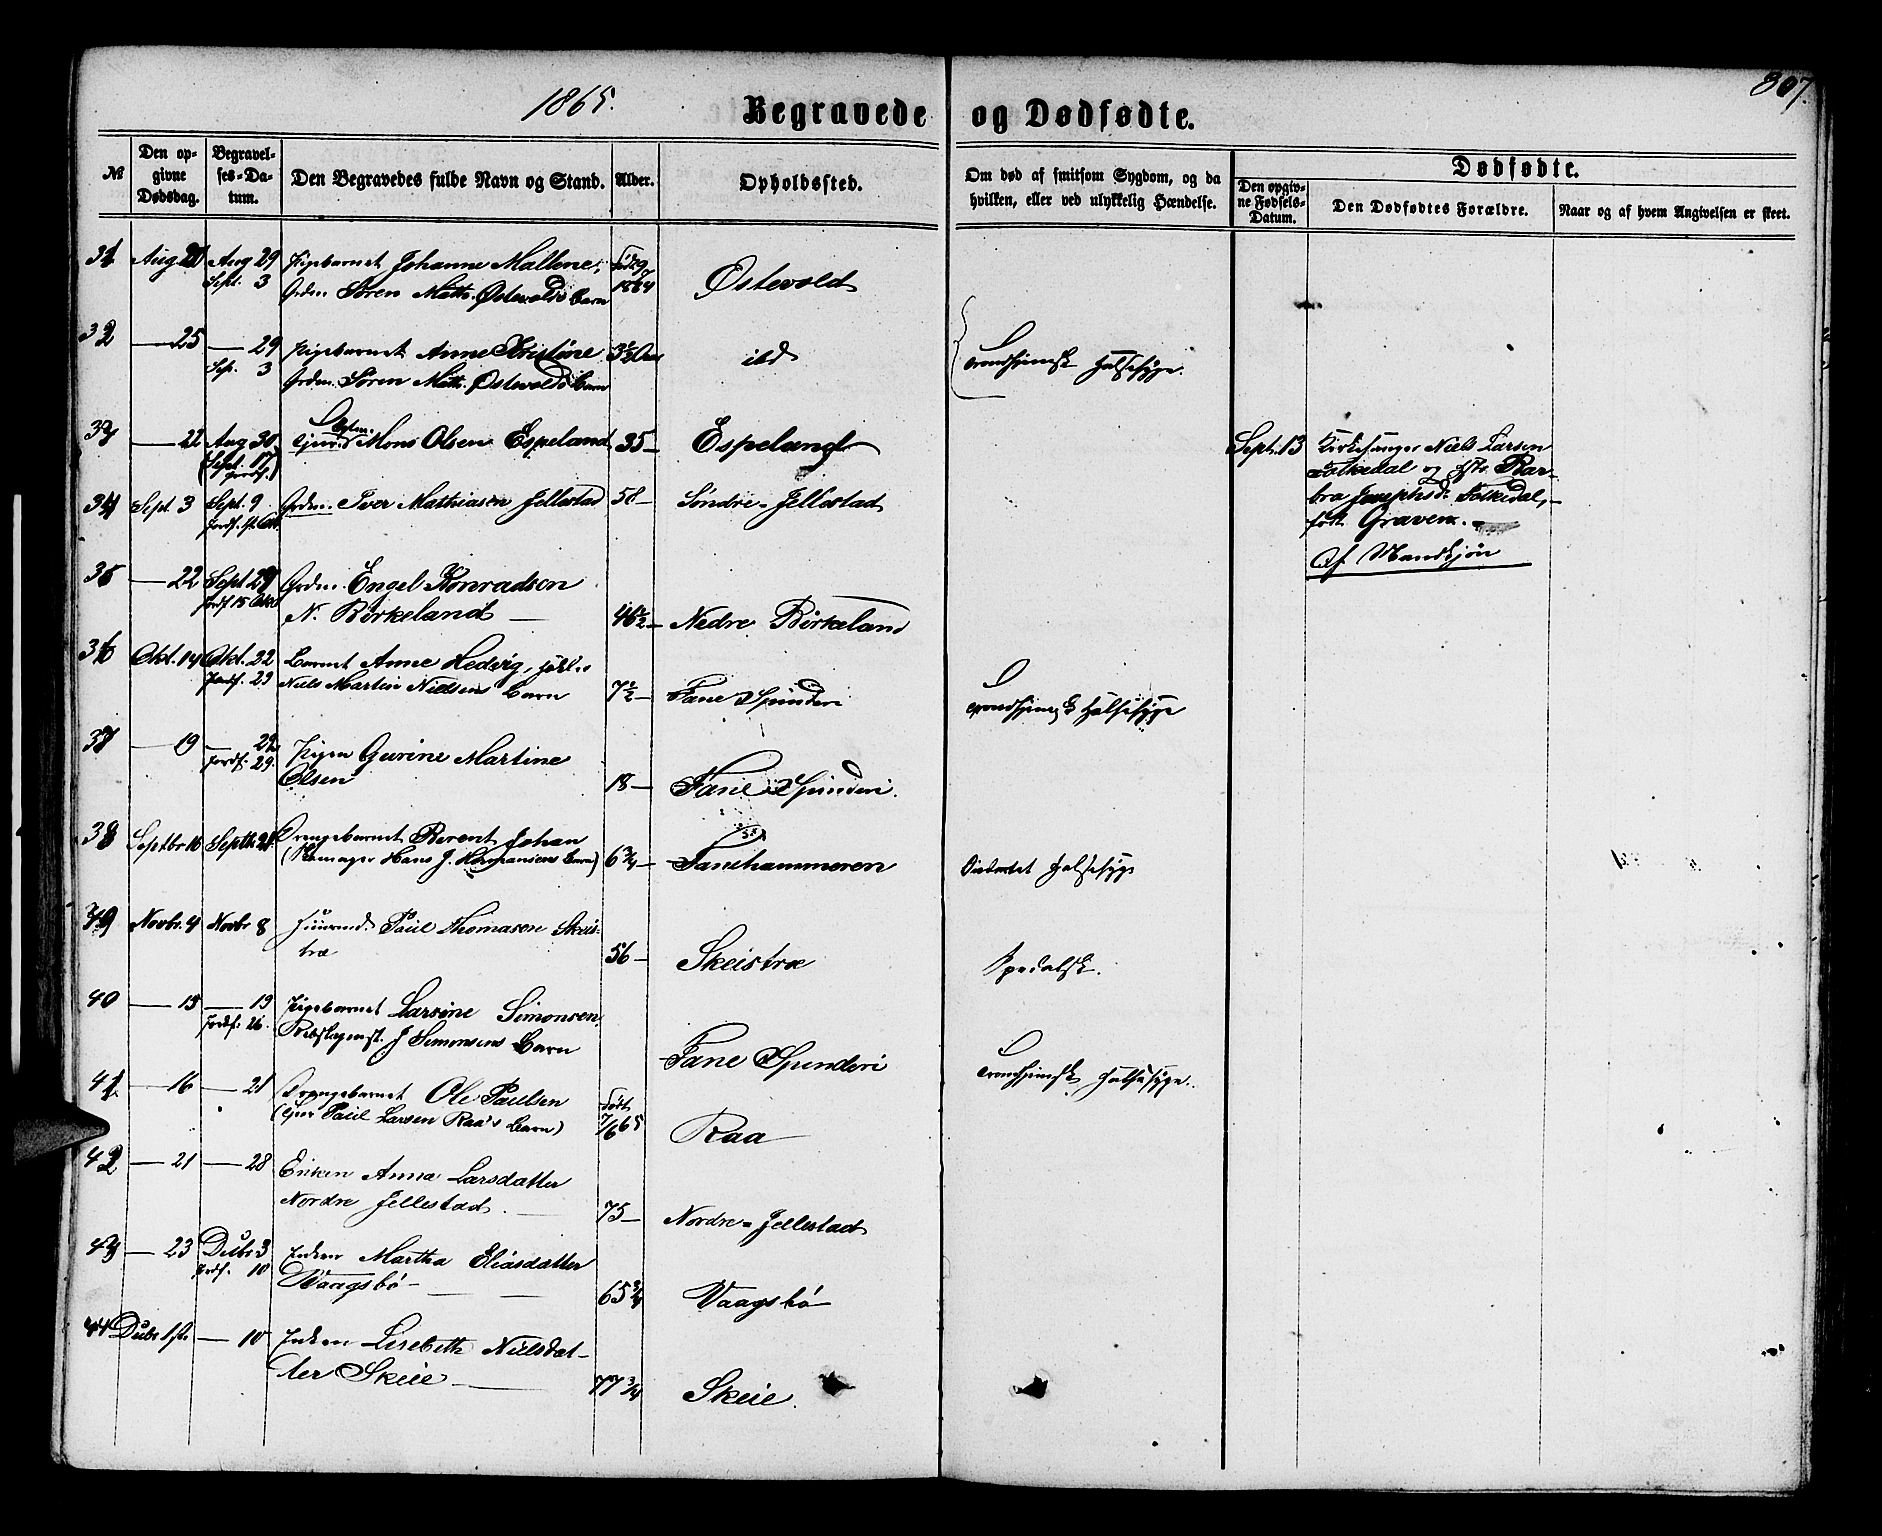 1865.
Begravede og Dødfødte.
307.
№
Den opgivne Dødsdag.
Begravelses-Datum.
Den Begravedes fulde Navn og Stand.
Alder.
Opholdssted.
Om død af smitsom Sygdom, og da hvilken, eller ved ulykkelig Hændelse.
Dødfødte.
Den opgivne Fødsels-Datum.
Den Dødfødtes Forældre.
Naar og af hvem Angivelsen er skeet.
31 Aug 20 Aug 29 Pigebarnet Johanne Maltene,
Sept. 3 Grdm. Søren Math. Østevolds Barn 1864 Østevold
32 — 25 — 29 Pigebarnet Anne Kristine 3½ Aar ibd
Sep. 3 Grdm. Søren Math. Østevolds Barn
Trondhjemsk Halssyge.
33 — 22 Aug 30 Mons Olsen Espeland 35 — Espeland
(Sept. 17 Jordf.)
Sept. 13 Kirkesanger Niels Larsen
Folkedal og Hstr. Barbra Josephsd. Folkedal,
født Graven.
Af Mandkjøn
34 Sept 3 Sept. 9 Grdm. Iver Mathiasen Jellestad 58 — Søndre-Jellestad
Jordf. 1st Okt
35 — 22 Sept 29 Grdm. Engel Konradsen
Jordf 15 Okt N. Birkeland — 46½ — Nedre Birkeland
36 Okt. 14 Okt. 22 Barnet Anne Hedvig,
Jordf. 23 Niels Martin Nielsens Barn 7½ — Fane Spinderi Trondhjemsk Halssyge
37 — 19 — 22 Pigen Gurine Martine
Jordf. 29. Olsen 18 — Fane Spinderi.
38 Septbr 16 Septb. 21 Drengebarnet Berent Johan
(Skomager Hans J. Hermansens Barn) 6¾ — Fanehammeren Halssyge
39 Novbr. 4 Novbr 8 Huusmd. Paul Thomasen Skeistræ 56 — Skeistræ Spedalsk.
40 — 15 — 19 Pigebarnet Larsine Simonsen,
Jordf. 26. J Simonsens Barn Fane Spinderi Trondhjemsk Halssyge.
41 — 16 — 21 Drengebarnet Ole Paulsen
(Gmd Paul Larsen Raa's Barn) Født 7/6 65 Raa
42 — 21 — 28 Enken Anna Larsdatter
Nordre Jellestad. — 75 — Nordre-Jellestad
43 — 23 Dcbr 3 Enken Martha Eliasdatter
Jordf. 10 Vaagsbø — 65¾ Vaagsbø
44 Dcbr 1ste — 10 Enken Lisebeth Nielsdatter Skeie — 77¾ Skeie.